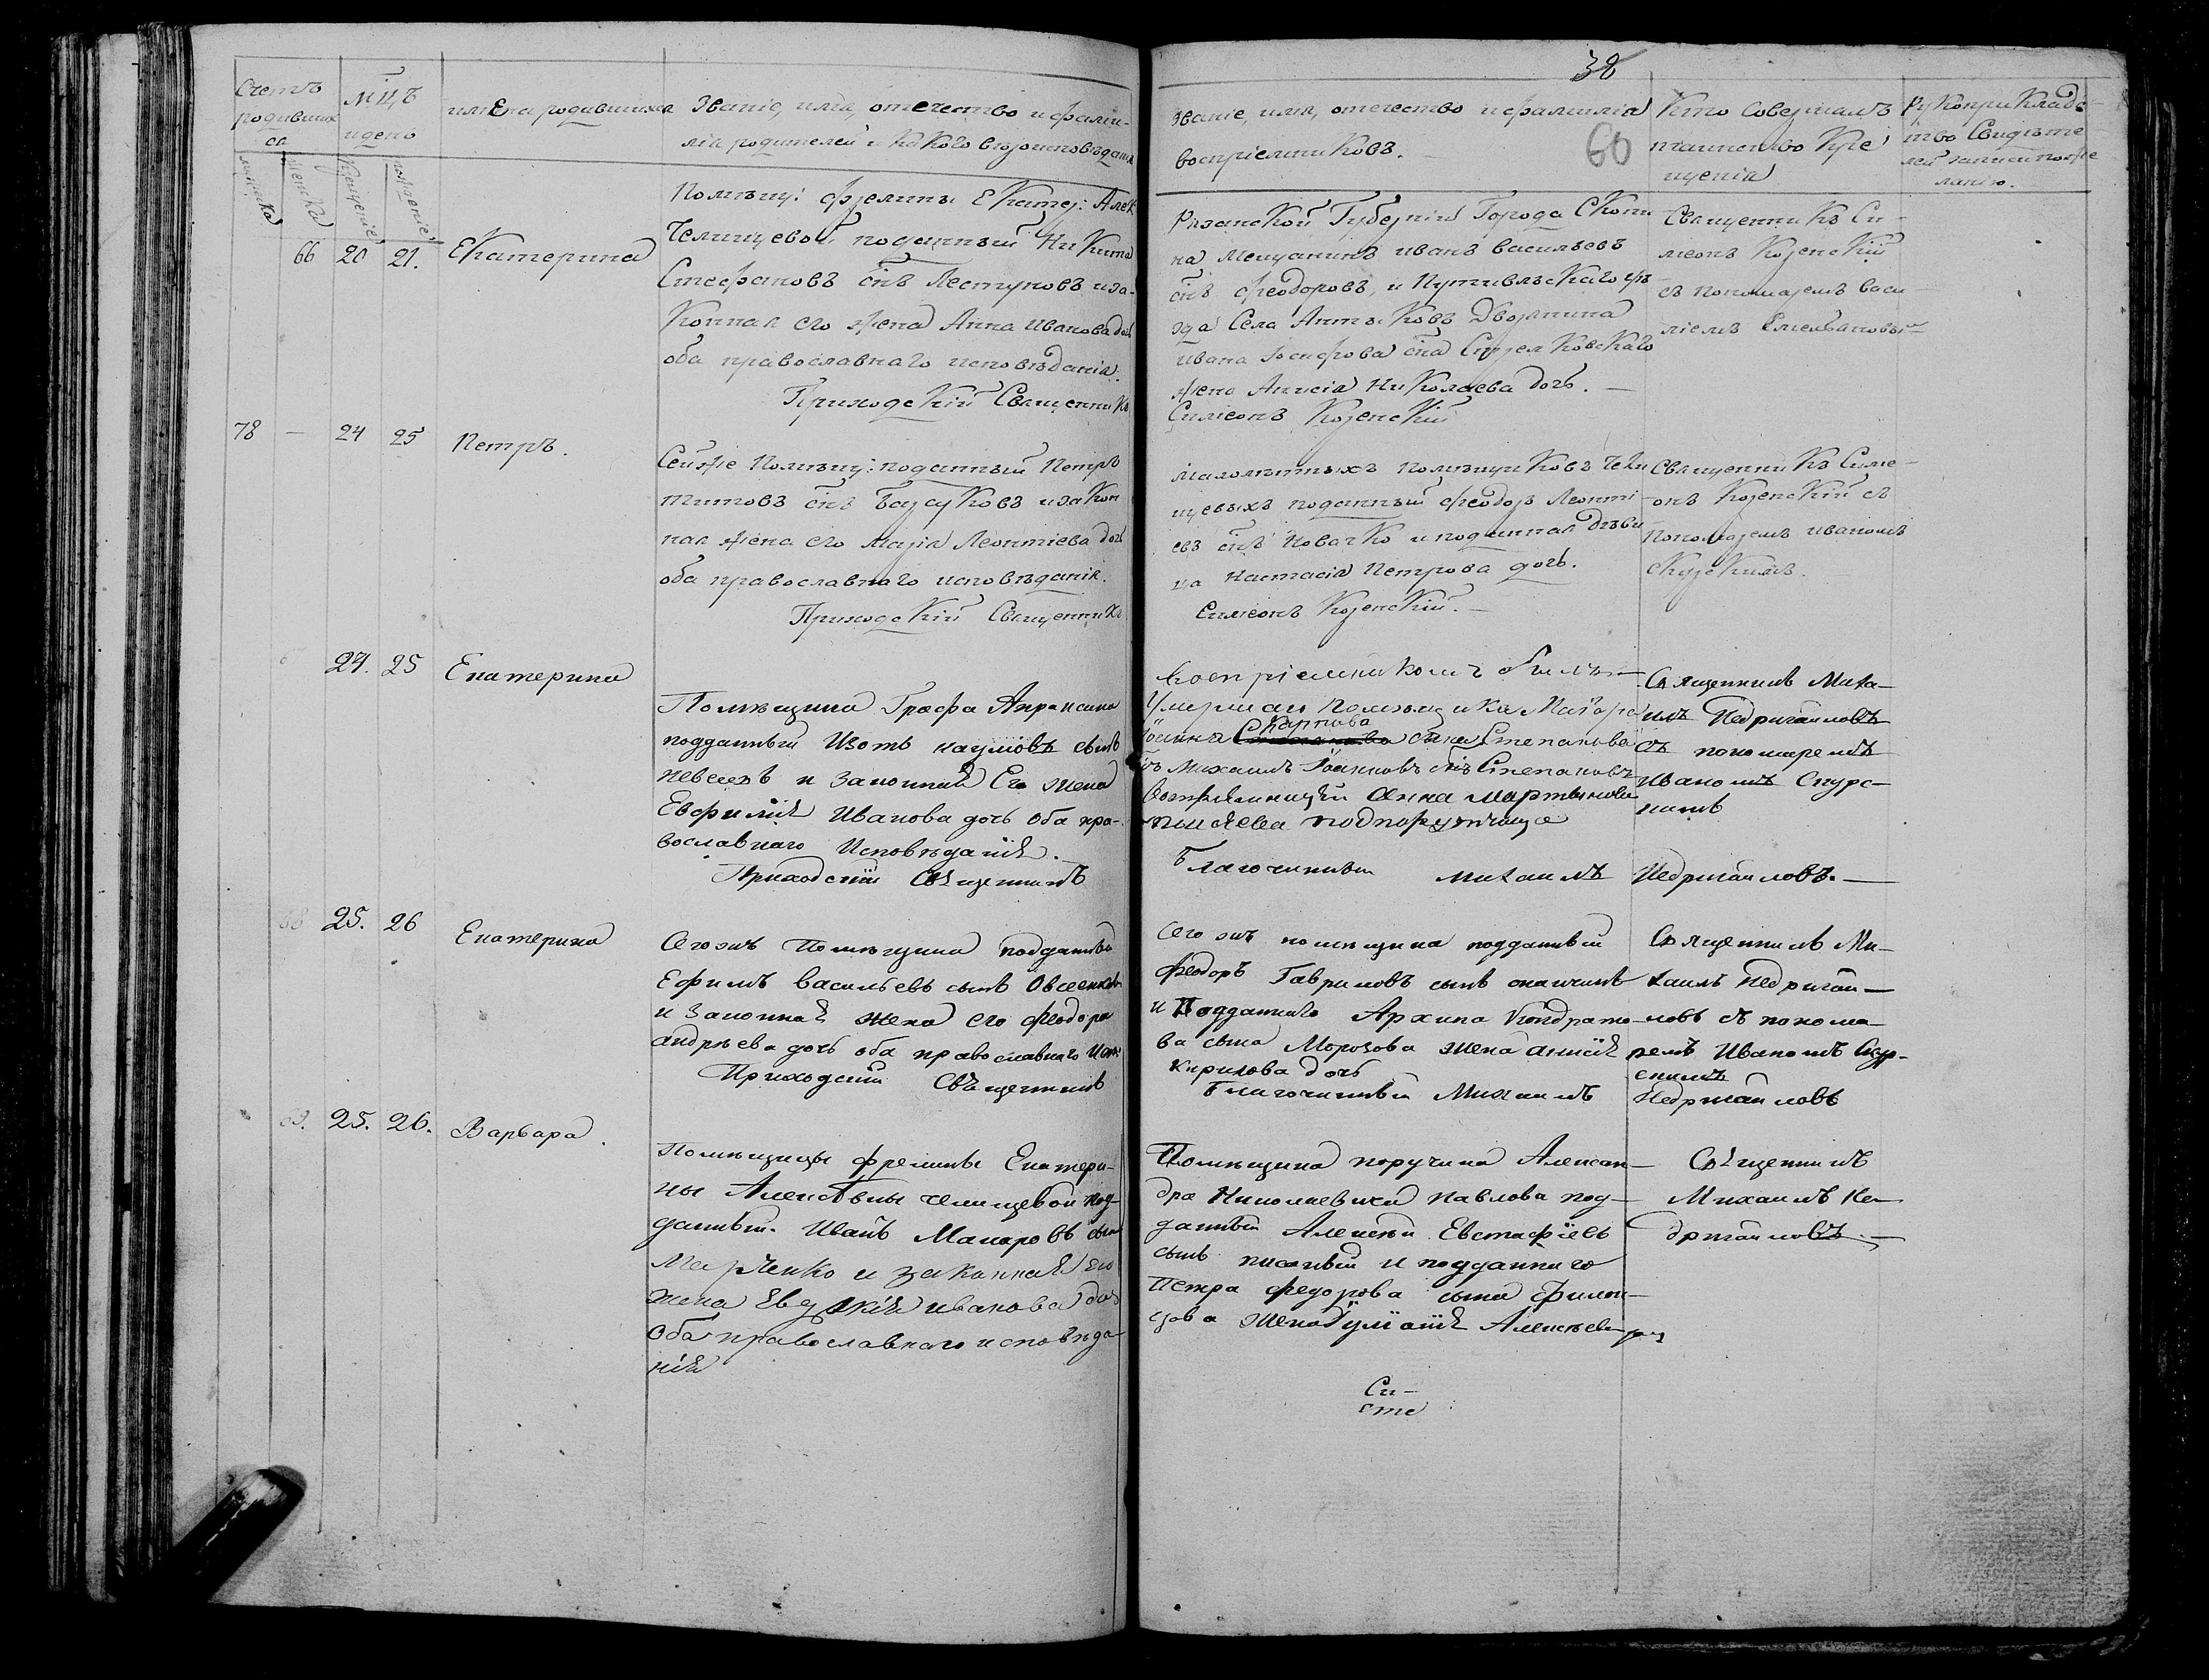 38
60
Счетъ
родивших
ся
мужеска
Женска
Мцъ
и день
рожденіе
крещеніе
имена родившихся
Званіе, имя, отечество и фами-
лія родителей и какого вероисповѣданія
Званіе, имя, отечество и фамилія
воспріемниковъ.
Кто совершалъ
таинство Кре
щенія
Рукоприкладс
тво Свидѣте
лей записи по же
ланію.
66 20 21. Екатерина
Помѣщи: фрелины Екатер: Алек
Челищевой подданный Никита
Стефановъ снъ Лестуновъ и за-
конная его жена Анна Иванова дочь
оба православнаго исповѣданія.
Приходскій Священникъ
Рязанской Губерніи Города Скопи
на Мещанинъ Иванъ Васильевъ
снъ Феодоровъ, и Путивльскаго уѣ
зда Села Антыковъ Дворянина
Ивана Іосифова сна Стрелковскаго
жена Анисія Николаева дочь.
Симеонъ Козенскій
Священникъ Си-
меонъ Козенскій
съ пономаремъ Васи
ліемъ
78 — 24 25 Петръ.
Сей же Помѣщи: подданный Петръ
Титовъ снъ и закон
ная жена его Марія Леонтіева дочь
оба православнаго исповѣданія.
Приходскій Священникъ
Малолѣтныхъ помѣщиковъ Чели
щевыхъ подданный Феодоръ Леонті
евъ снъ Новачко и подданная дѣви
ца Настасія Петрова дочь.
Симеонъ Козенскій.
Священникъ Симе-
онъ Козенскій съ
Пономаремъ Иваномъ
Скурскимъ.
67 24. 25 Екатерина
Помѣщика Графа Апраксина
подданный Изотъ Наумовъ сынъ
и законная Его жена
Евфимія Иванова дочь оба пра-
вославнаго Исповѣданія.
Приходскій Священникъ
воспріемникомъ былъ
Умершаго помѣщика Маіора
Іоанна Карпова сына Степанова
снъ Михаилъ Іоанновъ снъ Степановъ
Воспріемницей Анна Мартынова
подпорутчица
Благочинный Михаилъ Недригайловъ.
Священникъ Миха-
илъ Недригайловъ
съ пономаремъ
Иваномъ Скурс-
кимъ
68 25. 26 Екатерина
Сего жъ Помѣщика подданный
Ефимъ Васильевъ сынъ Овсеенко
и Законная жена его Феодора
Андрѣева дочь оба православнаго Исп:
Приходскій Священникъ
Сего жъ помѣщика подданный
Феодоръ Гавриловъ сынъ
и Подданнаго Архипа Кондрато-
ва сына Морозова жена Аннія
Кирилова дочь
Благочинный Михаилъ Недригайловъ
Священникъ Ми-
хаилъ Недригай-
ловъ съ понома-
ремъ Иваномъ Скур-
скимъ
69. 25. 26. Варвара.
Помѣщицы фрелины Екатери-
ны Алексѣвны Челищевой под-
данный Иванъ Макаровъ сынъ
Марченко и законная его
жена Евдокія Иванова доч
Оба православнаго исповѣда
нія
Помѣщика поручика Алексан-
дра Николаевича Павлова под-
данный Алексѣй Евстафіевъ
сынъ и подданнаго
Петра Федорова сына Филон-
цова жена Іуліанія Алексѣева доч
Священникъ
Михаилъ Не-
дригайловъ.
Си-
сте